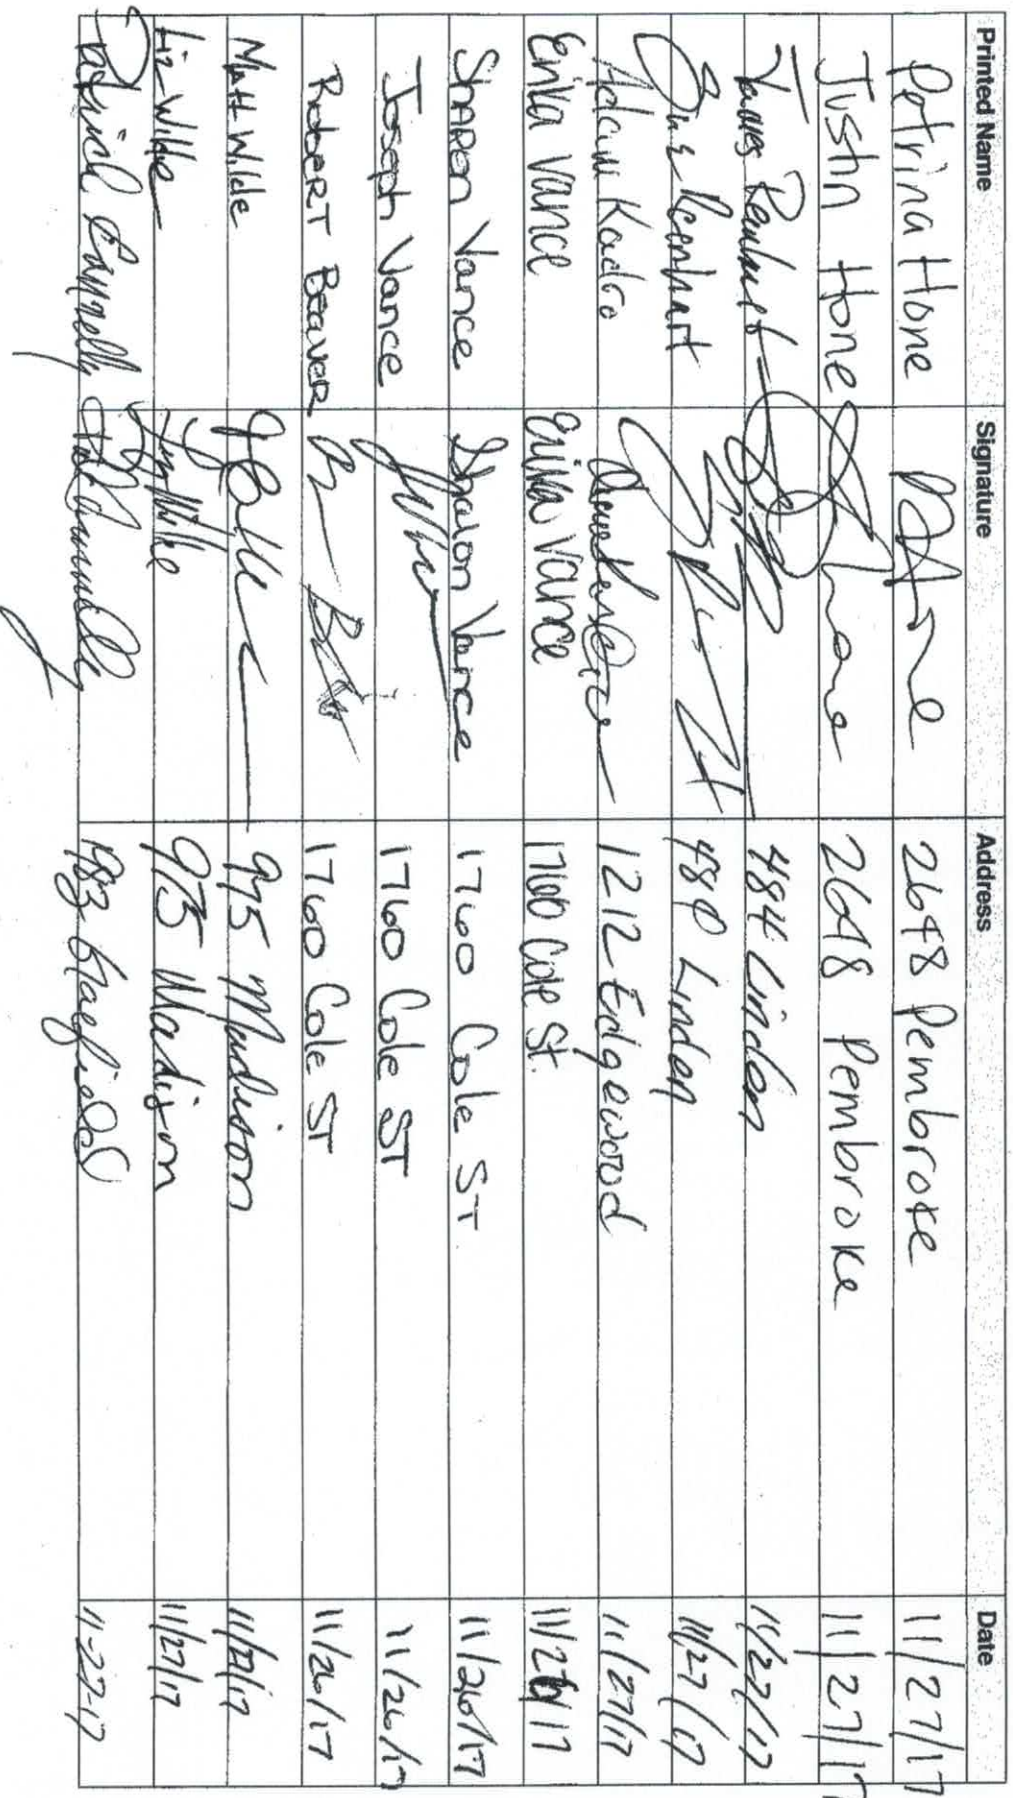 Printed Name Signature Address Date
Petrina Hone 2648 Pembroke 11/27/17
Justin Hone 2648 Pembroke 11/27/17
James 484 Linden 11/27/17
48 Linden 11/27/17
Adam Kadro 1212 Edgewood 11/27/17
Erika Vance Erika Vance 1760 Cole St. 11/26/17
Sharon Vance Sharon Vance 1760 Cole ST 11/26/17
Joseph Vance 1760 Cole ST 11/26/17
Robert Beaver 1760 Cole ST 11/26/17
Matt Wilde 975 Madison 11/27/17
Liz Wilde 975 Madison 11/27/17
11-27-17